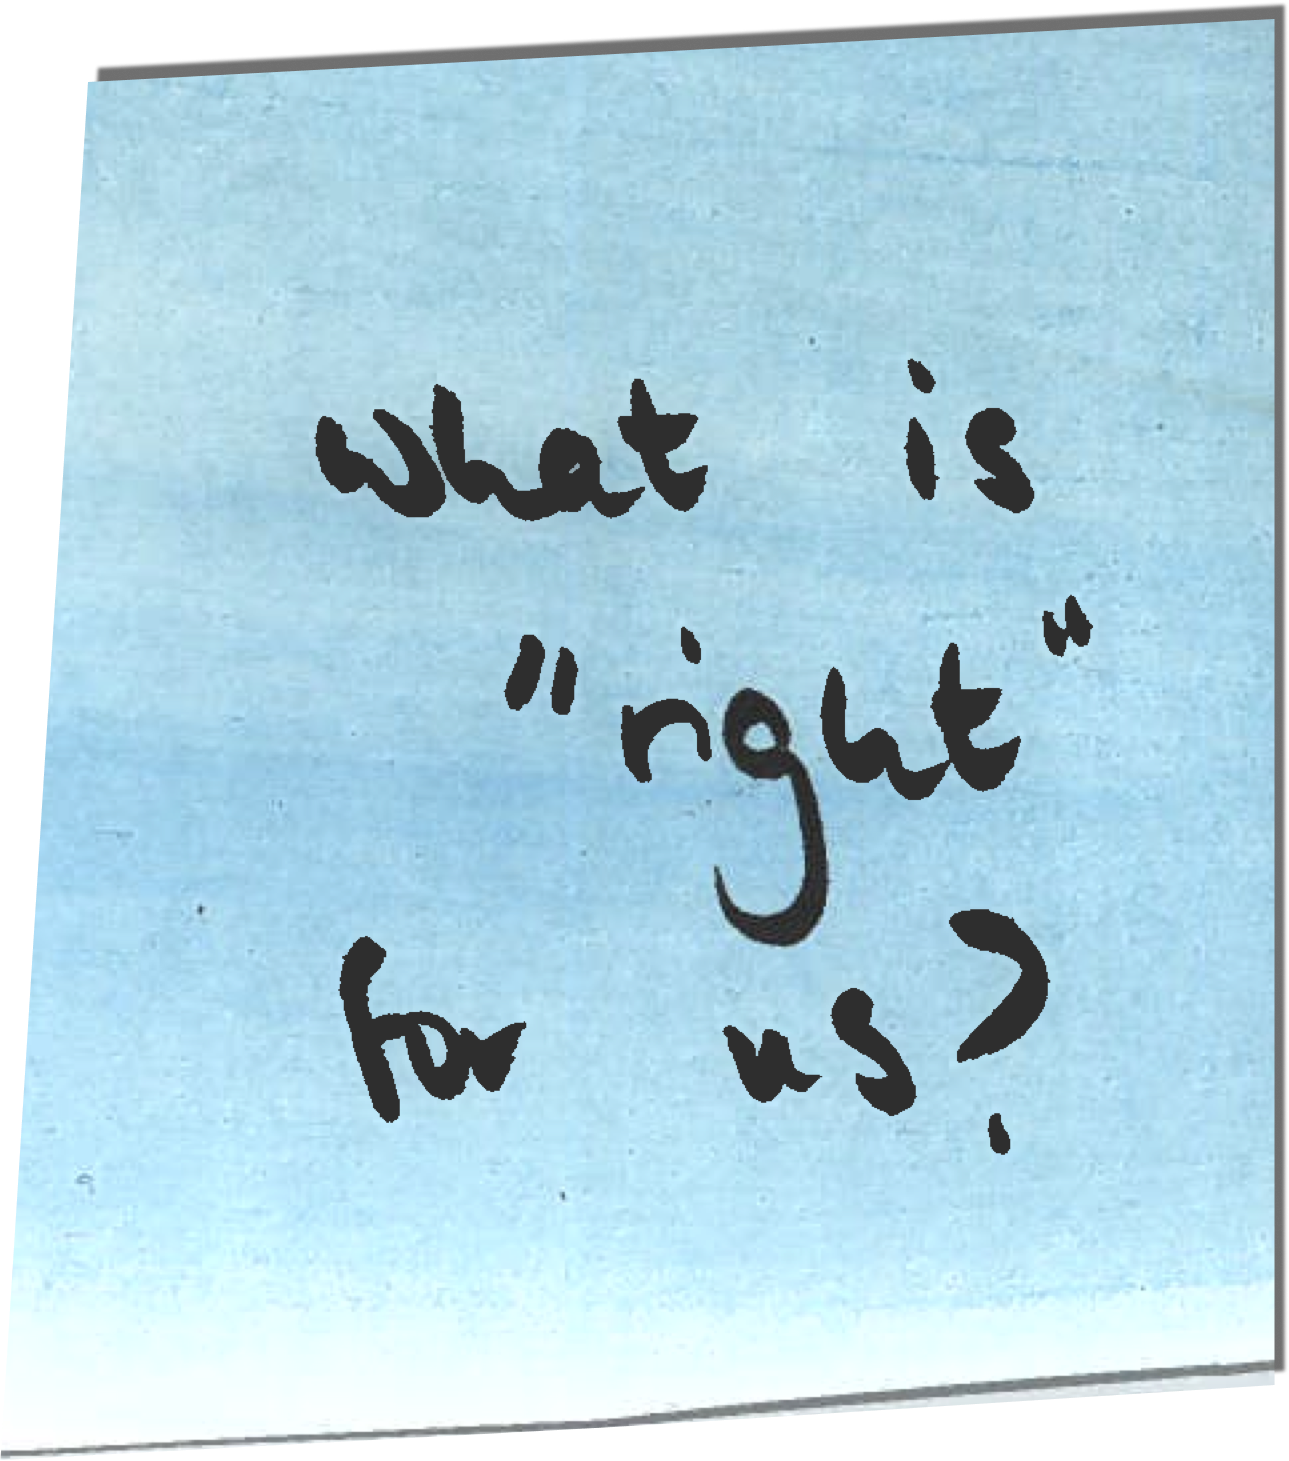 what is
"right"
for us?